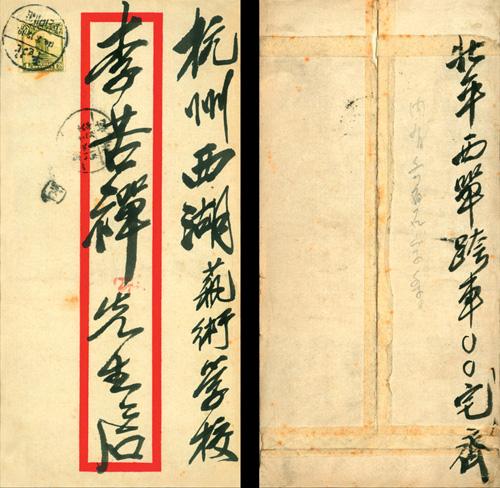 杭州西湖藝術學校
李苦禪先生啟
北平西單跨車〇〇宅齊